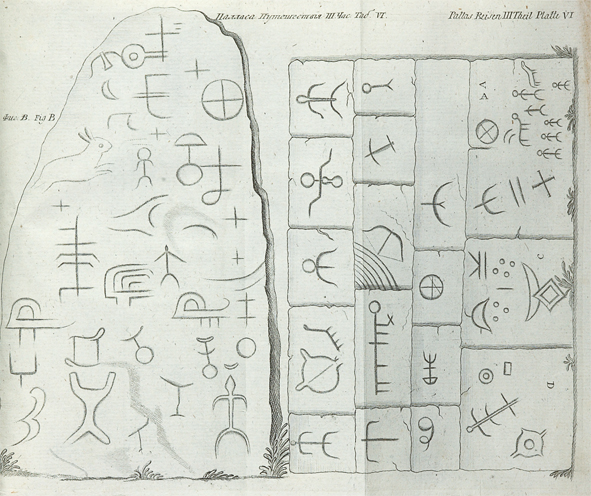 Палласа Путешествія III Час. Таб. VI.
Pallas Reisen III Theil Platte VI
Фиг. B. Fig B